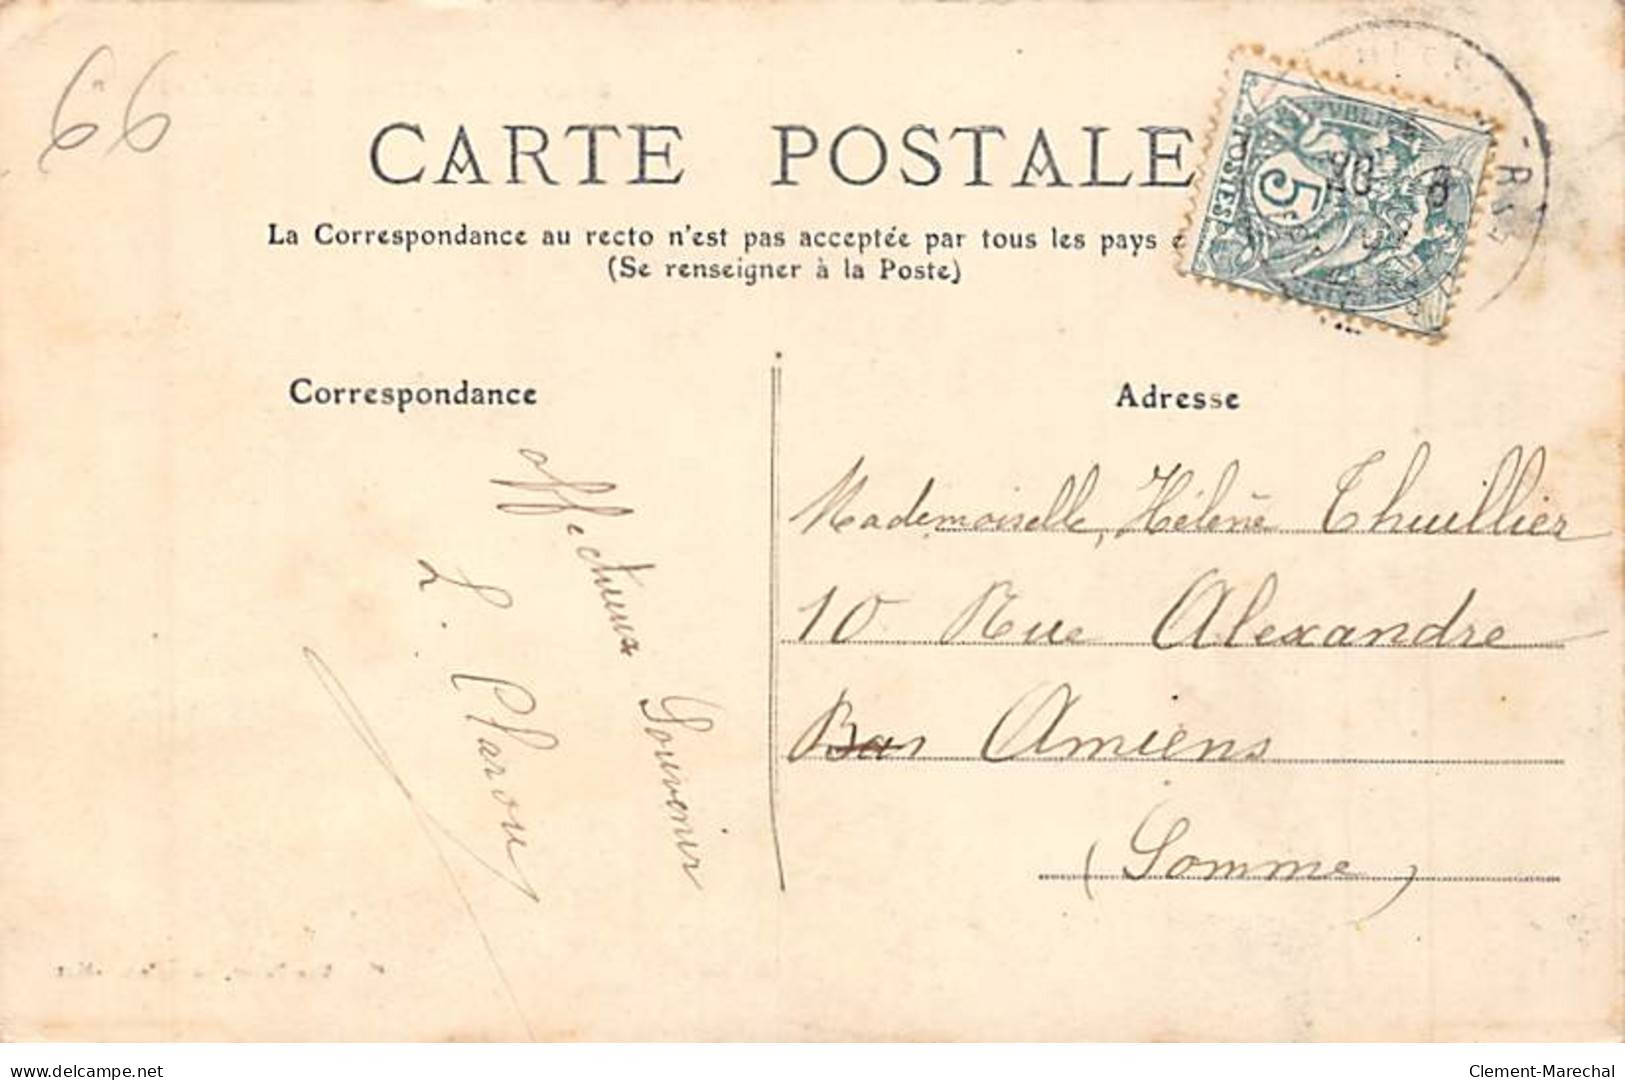 66
CARTE POSTALE
La Correspondance au recto n'est pas acceptée par tous les pays
(Se renseigner à la Poste)
POSTES
5
Correspondance
affectueux Souvenir
Adresse
Mademoiselle, Hélène Thuillier
10 Rue Alexandre
Amiens
(Somme)
Clement-Marechal